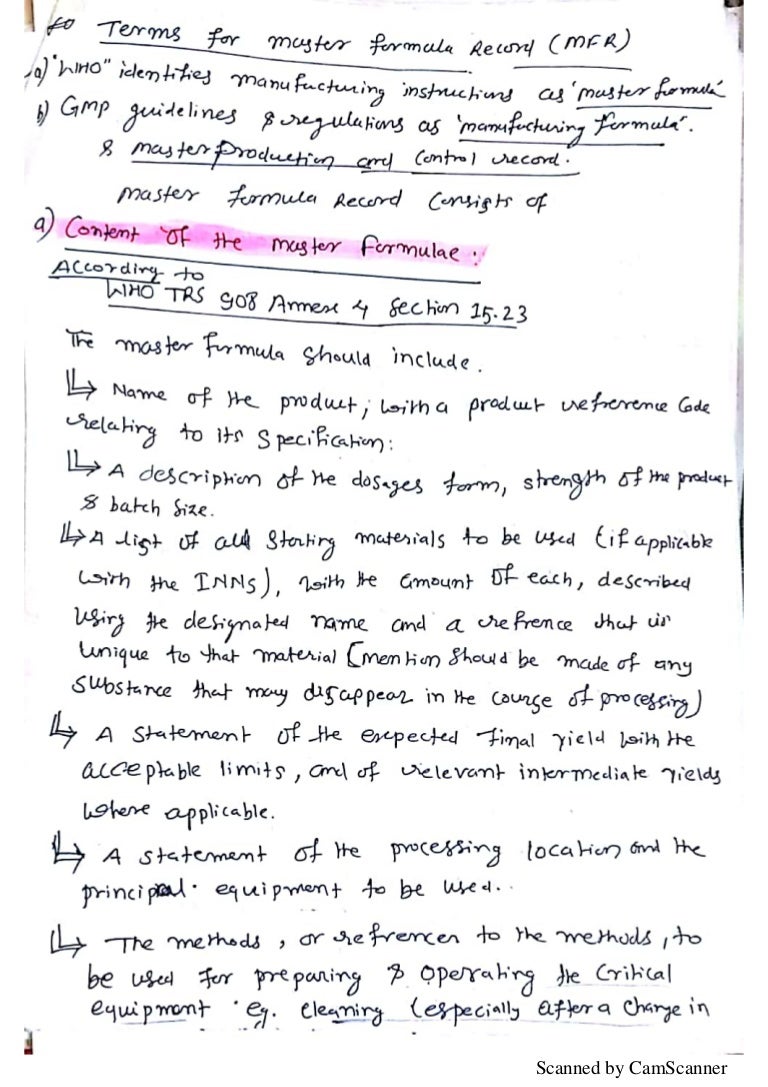 Terms for master formula Record (MFR)
a) "WHO" identifies manufacturing instructions as 'master formula'
b) GMP guidelines & regulations as 'manufacturing formula'.
& master production and control record.
master formula Record Consists of
a) Content of the master formulae :
According to
WHO TRS 908 Annex 4 section 15.23
The master formula should include.
↳ Name of the product, with a product refrerence Code
relating to its specification:
↳ A description of the dosages form, strength of the product
& batch size.
↳ A list of all Starting materials to be used (if applicable
with the INNs), with the amount of each, described
using the designated name and a refrence that is
unique to that material [mention should be made of any
substance that may disappear in the course of processing)
↳ A Statement of the expected final yield with the
acceptable limits, and of relevant intermediate yields
where applicable.
↳ A statement of the processing location and the
principal equipment to be used..
↳ The methods, or refrences to the methods, to
be used for preparing & operating the Critical
equipment eg. cleaning (especially after a change in
Scanned by CamScanner